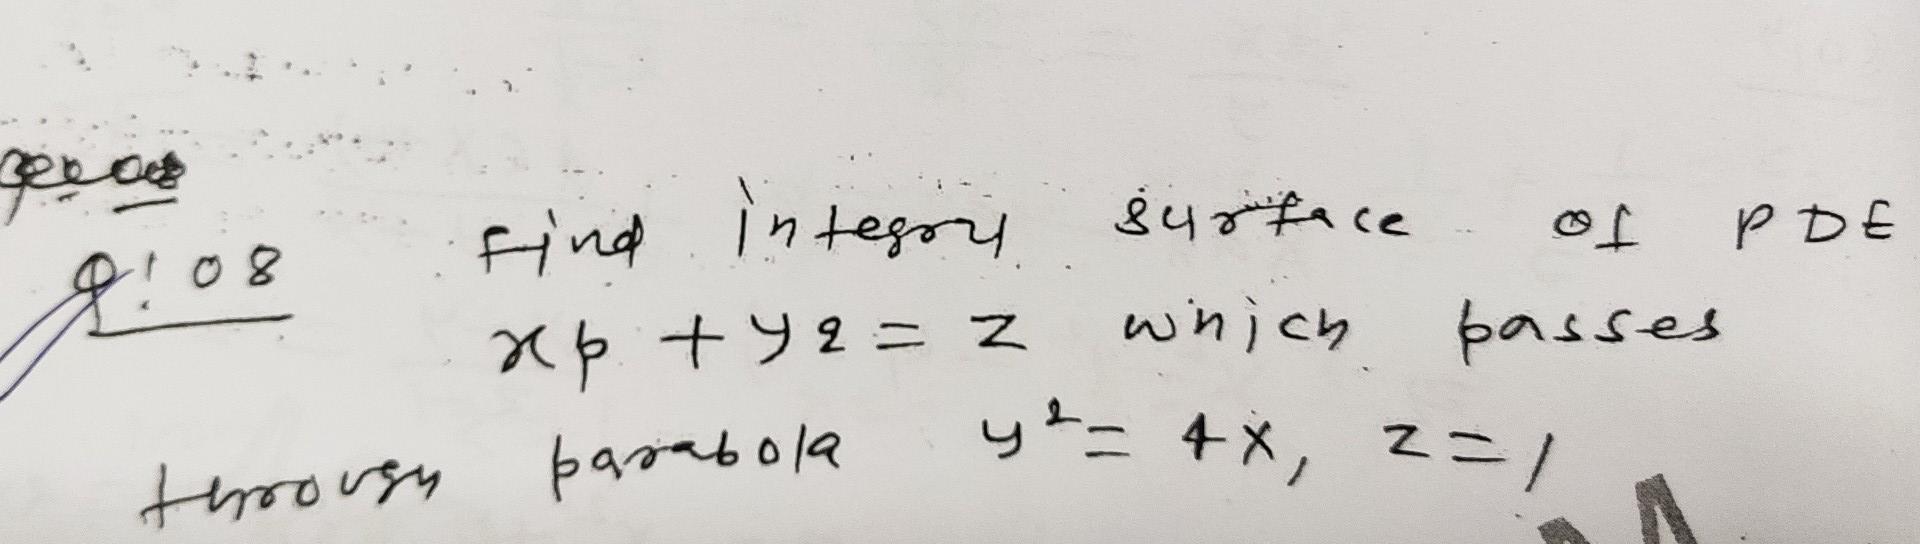 Q! 08 Find integral surface of PDE
xp + yq = z which passes
through parabola y² = 4x, z = 1
M